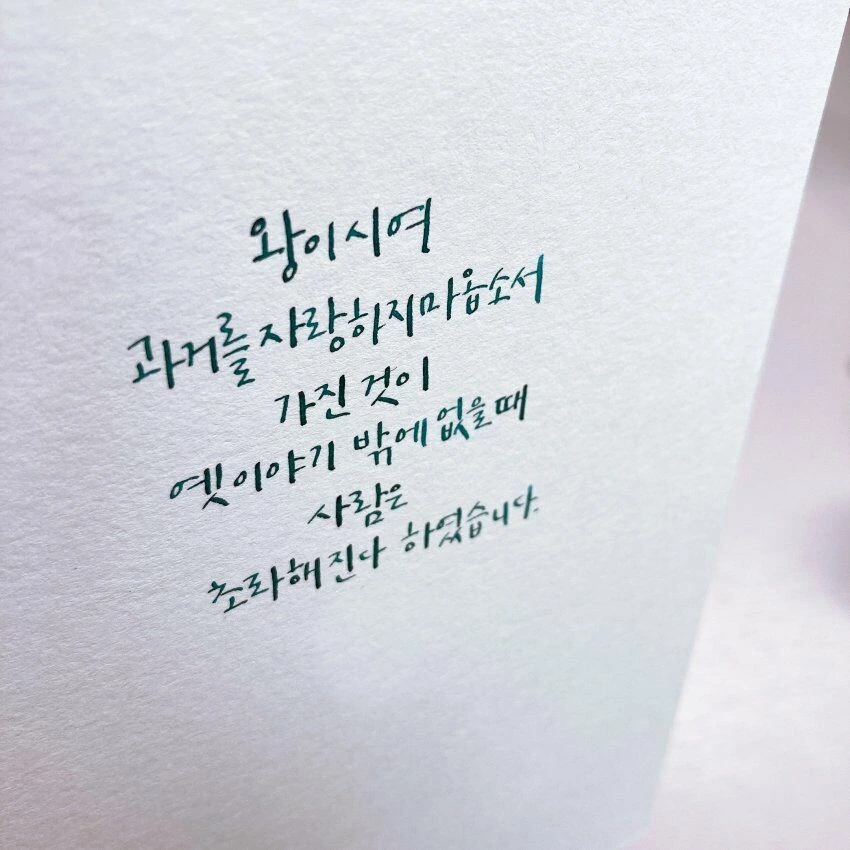 왕이시여
과거를 자랑하지마옵소서
가진 것이
옛이야기 밖에 없을때
사람은
초라해진다 하였습니다.